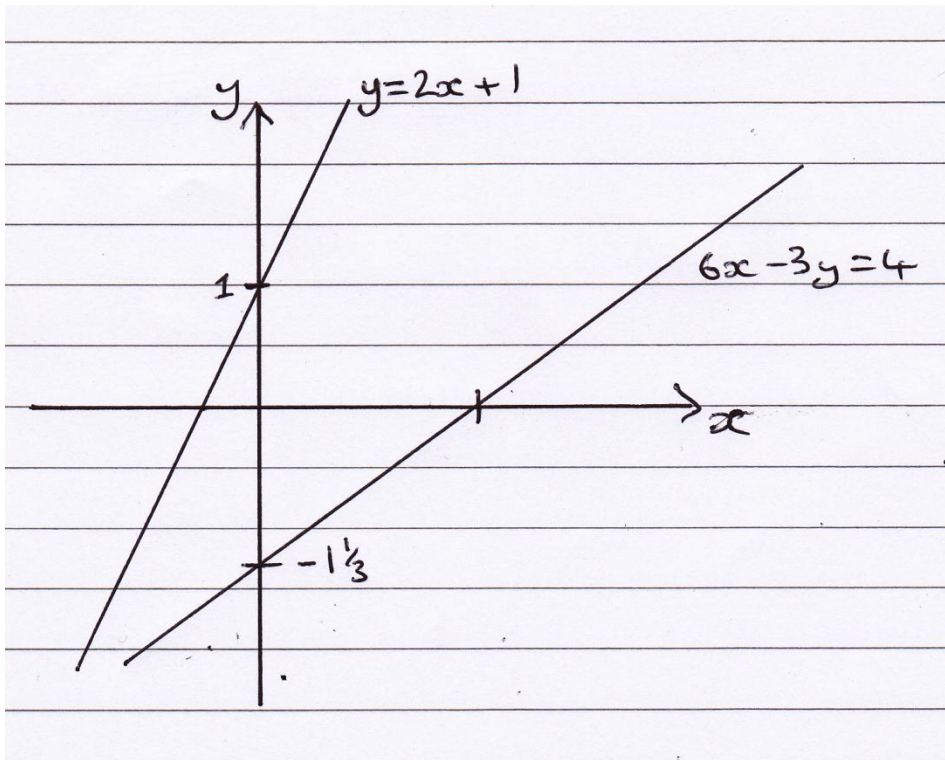 y
y=2x+1
1
6x-3y=4
x
-1⅓